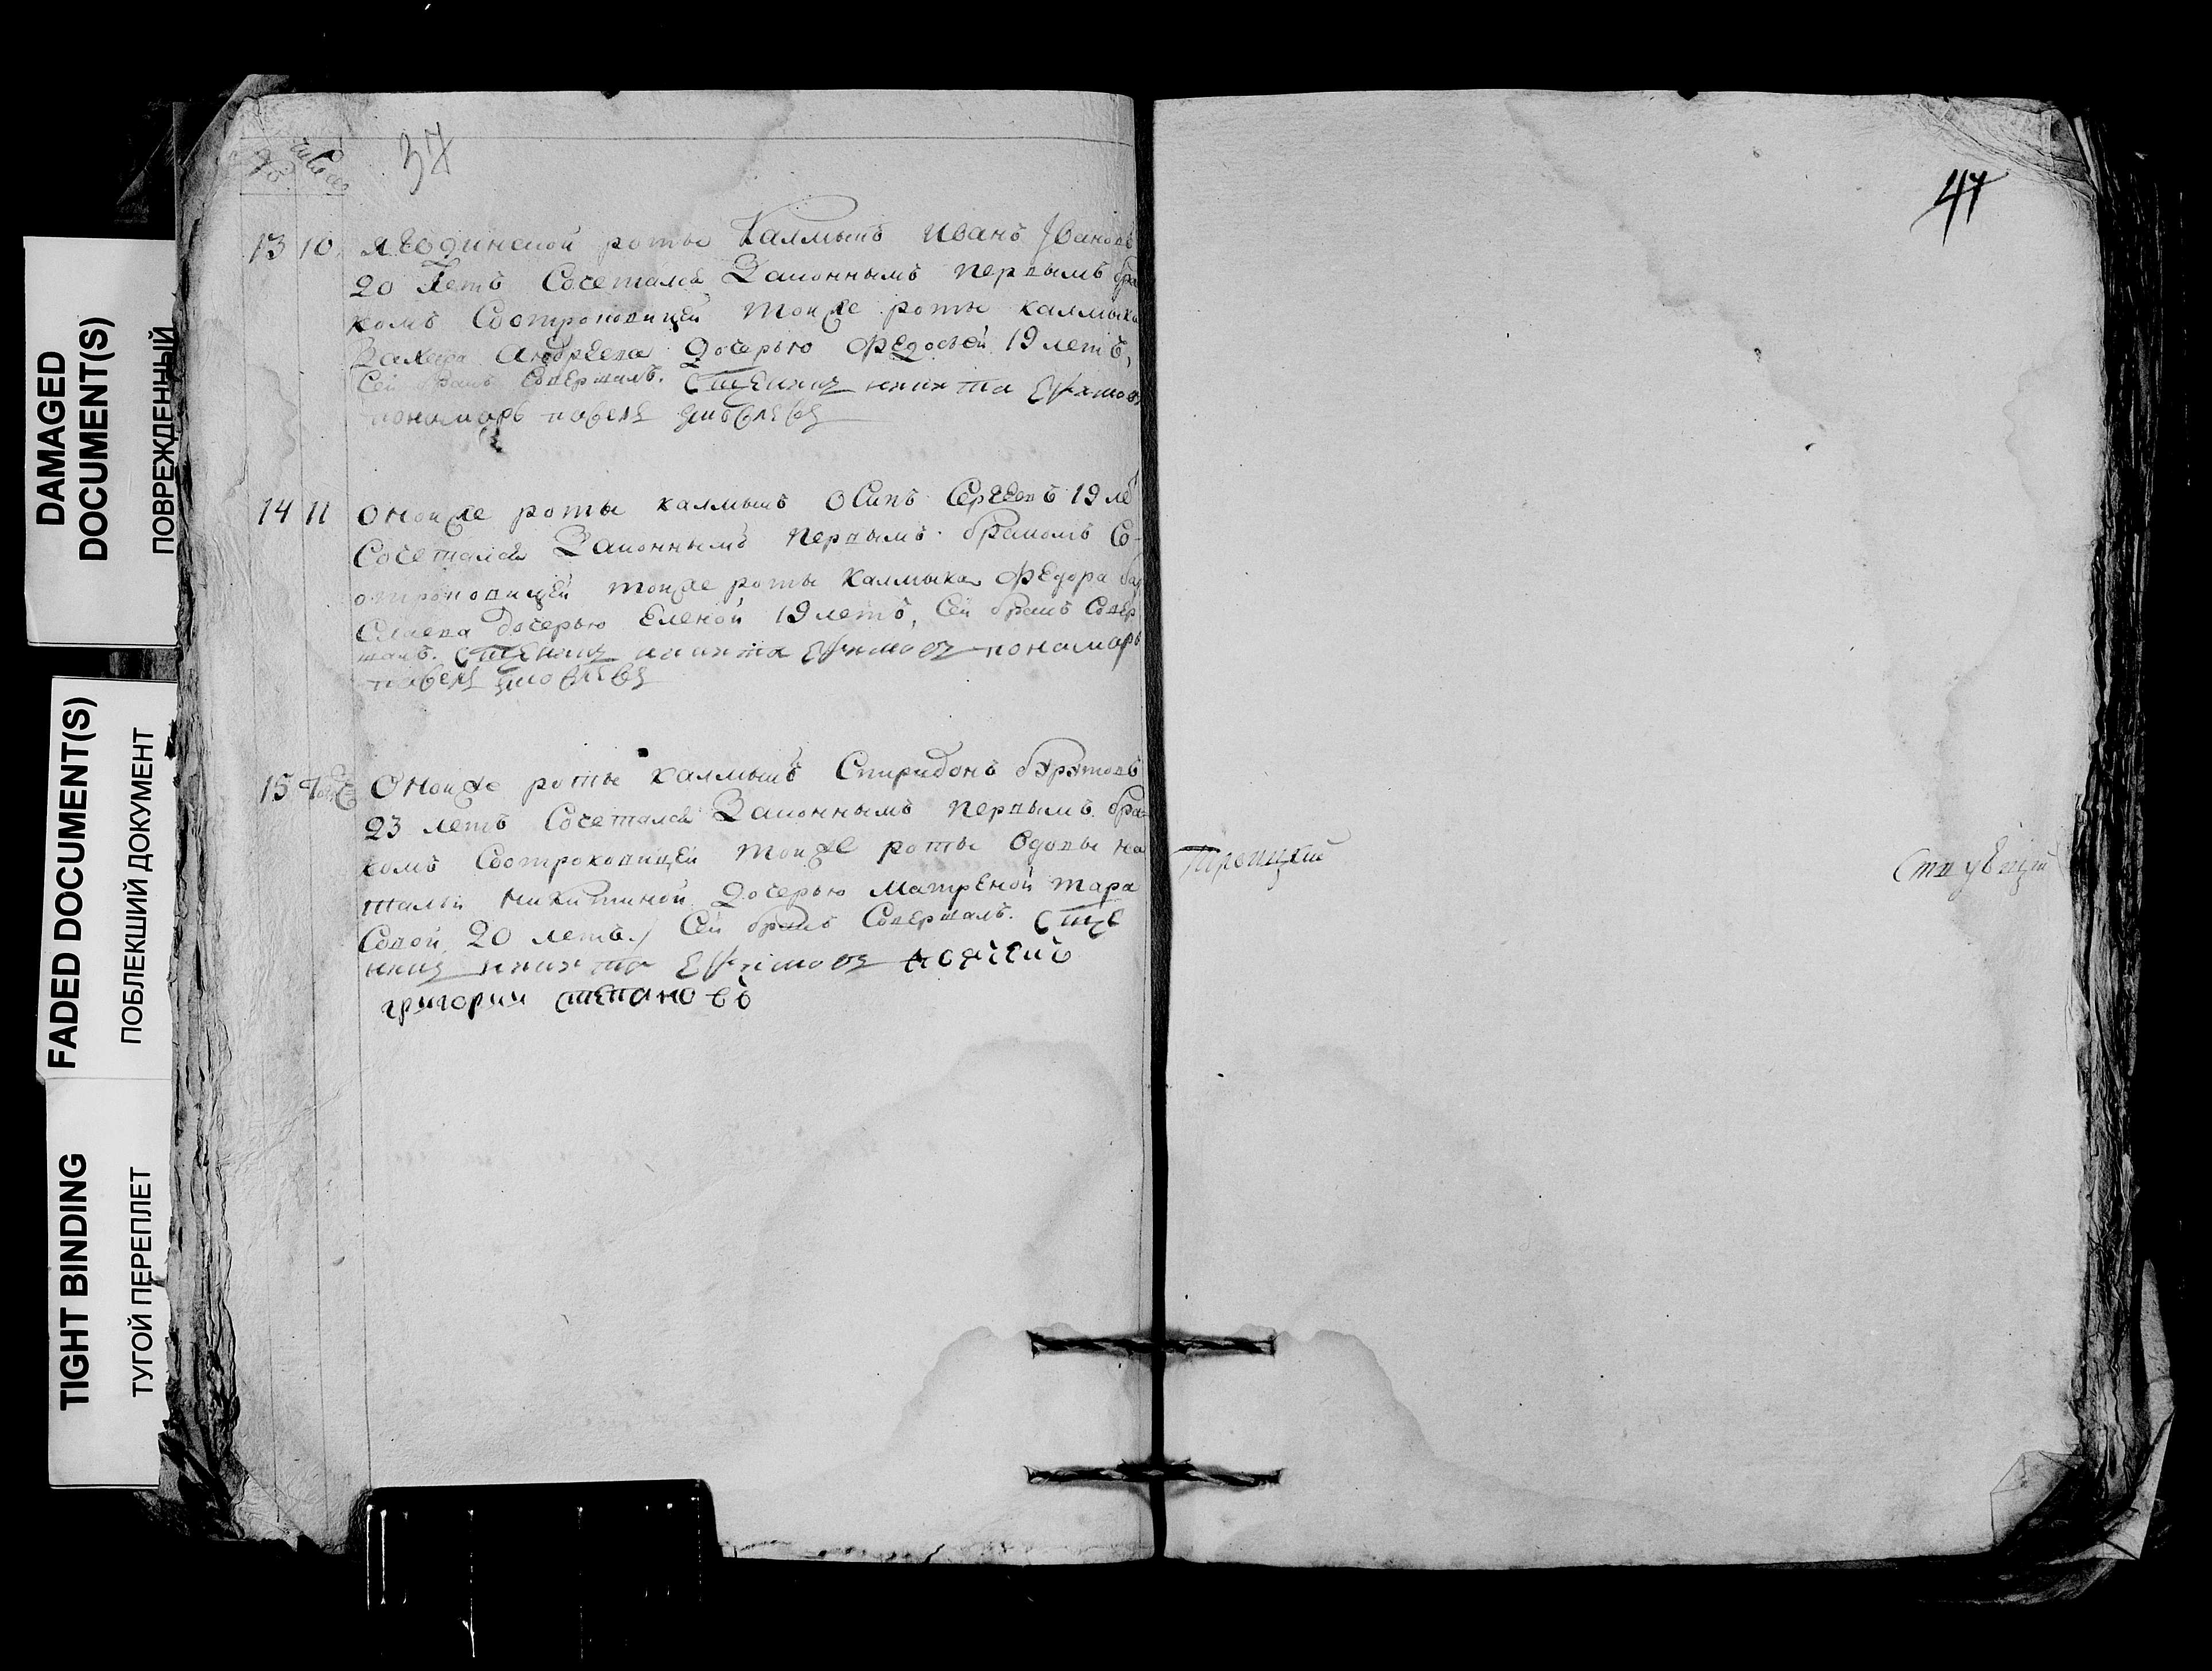 DAMAGED DOCUMENT(S)
ПОВРЕЖДЕННЫЙ
FADED DOCUMENT(S)
ПОБЛЕКШИЙ ДОКУМЕНТ
TIGHT BINDING
ТУГОЙ ПЕРЕПЛЕТ
число
37
13 10 Ягодинской роты Калмыкъ Иванъ Ивановъ
20 летъ Сочетался Законнымъ первымъ бра
комъ Соотроковицей тойже роты калмыка
Захара Андреева Дочерью Федосьей 19 летъ,
Сей бракъ Совершалъ. Сщенникъ никита Ефимовъ
пономарь павелъ
14 11 Оной же роты калмыкъ Осипъ Сергеевъ 19 ле
Сочетался Законнымъ первымъ бракомъ Со-
отроковицей тойже роты Калмыка Федора
дочерью Еленой 19 летъ, Сей бракъ Совер
шалъ. Сщенникъ никита Ефимовъ пономарь
павелъ
15 Оной же роты калмыкъ Спиридонъ
23 летъ Сочетался Законнымъ первымъ бра-
комъ Соотроковицей тойже роты Вдовы На
тальи Никитиной Дочерью Матреной Тара
совой 20 летъ. Сей бракъ Совершалъ. Сще
нникъ никита Ефимовъ
григории Степановъ
47
Троицкий